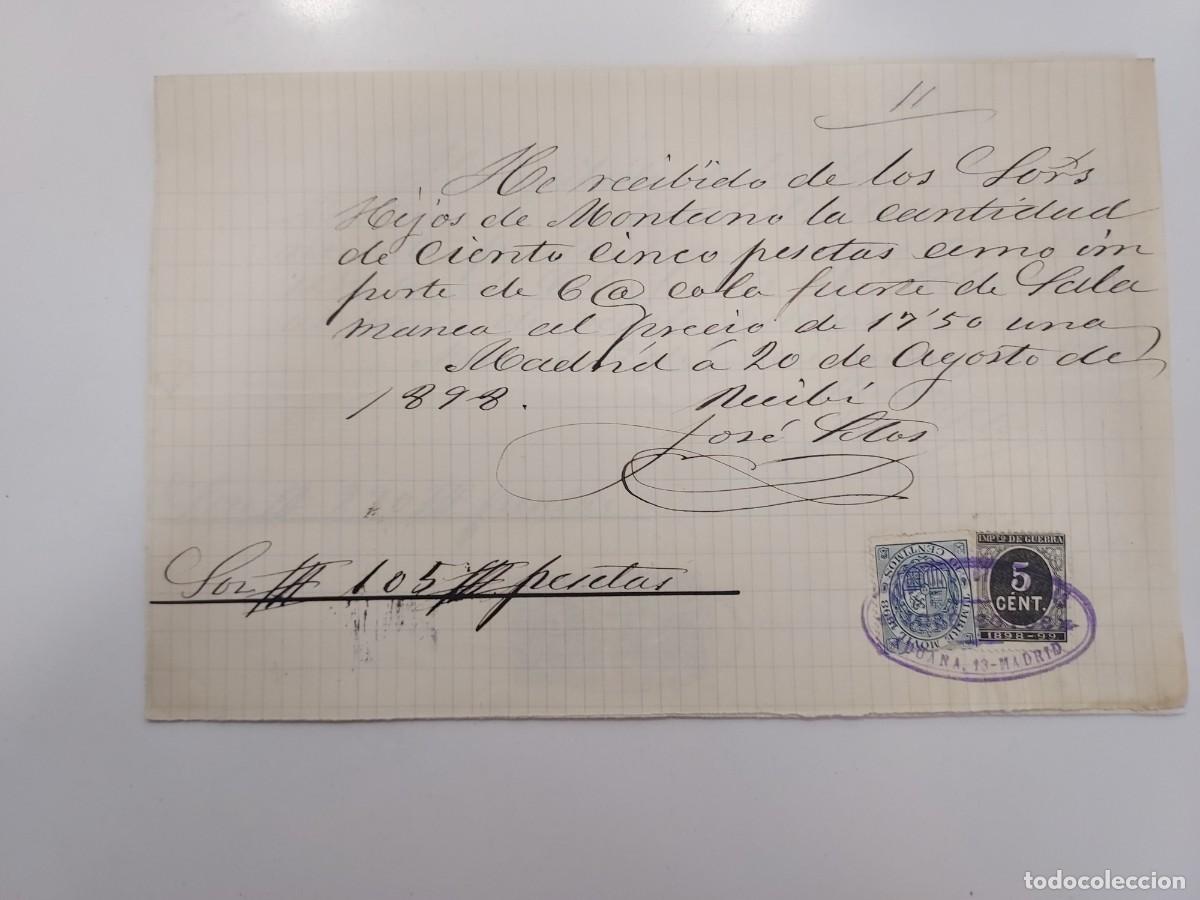 11
He recibido de los Sores
Hijos de Montano la cantidad
de ciento cinco pesetas como im
porte de 6 @ cola fuerte de Sala
manca al precio de 17'50 una
Madrid á 20 de Agosto de
1898.
Recibí
José
Son # 105 # pesetas
10 CENTIMOS
TIMBRE MOVIL 1898
IMPTO DE GUERRA
5
CÉNT.
1898-99
ADUANA, 13-MADRID
todocoleccion